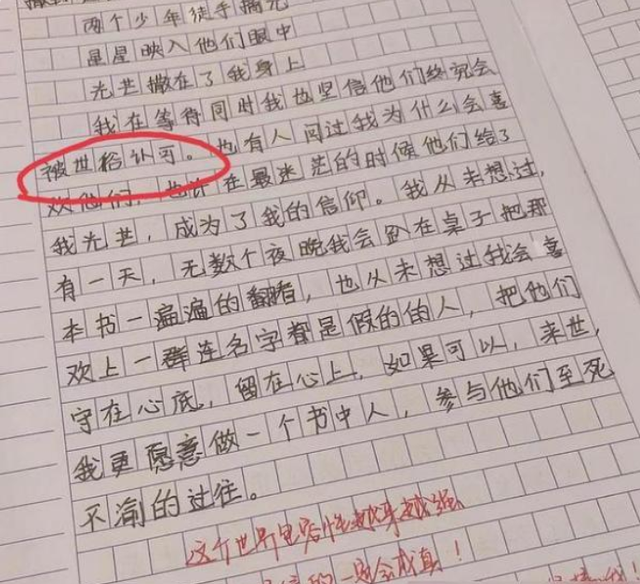 两个少年徒手摘光
星星映入他们眼中
光芒撒在了我身上
我在等待同时我也坚信他们终究会
被世俗认可。也有人问过我为什么会喜
欢他们，也许在最迷茫的时候他们给了
我光芒，成为了我的信仰。我从未想过，
有一天，无数个夜晚我会趴在桌子把那
本书一遍遍的翻看，也从未想过我会喜
欢上一群连名字都是假的的人，把他们
守在心底，留在心上，如果可以，来世，
我更愿意做一个书中人，参与他们至死
不渝的过往。
这个世界包容性越来越强
一定会成真！